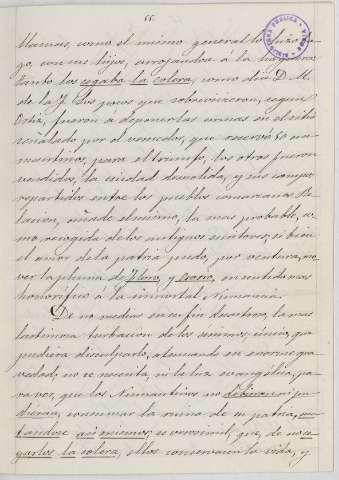 55.
llamas, como el mismo general lo hizo lue-
go, con sus hijos, arrojandose á la hoguera.
Tanto los cegaba la colera, como dice D. M.
de la F. Los pocos que sobrevivieron, segun
Ortiz, fueron á deponer las armas en el sitio
señalado por el vencedor, que reservó 50 nu-
mantinos, para el triunfo, los otros fueron
vendidos, la ciudad demolida, y sus campos
repartidos entre los pueblos comarcanos. Re-
lacion, añade el mismo, la mas probable, co-
mo recogida de los antiguos escritores; si bien
el amor de la patria pudo, por ventura, mo-
ver la pluma de Floro, y Orosio, en sentido mas
honorífico á la inmortal Numancia.
De no mediar en su fin desastroso, la mas
lastimosa turbacion de los animos, único, que
pudiera disculparlo, atenuando su enorme gra-
vedad, no se necesita, ni la luz evangélica, pa-
ra ver, que los Numantinos no debieron ni pu-
dieron, consumar la ruina de su patria,
tandose asi mismos; es verosimil, que, de no ce-
garlos la colera, ellos conservaran la vida, y
BIBLIOTECA PUBLICA